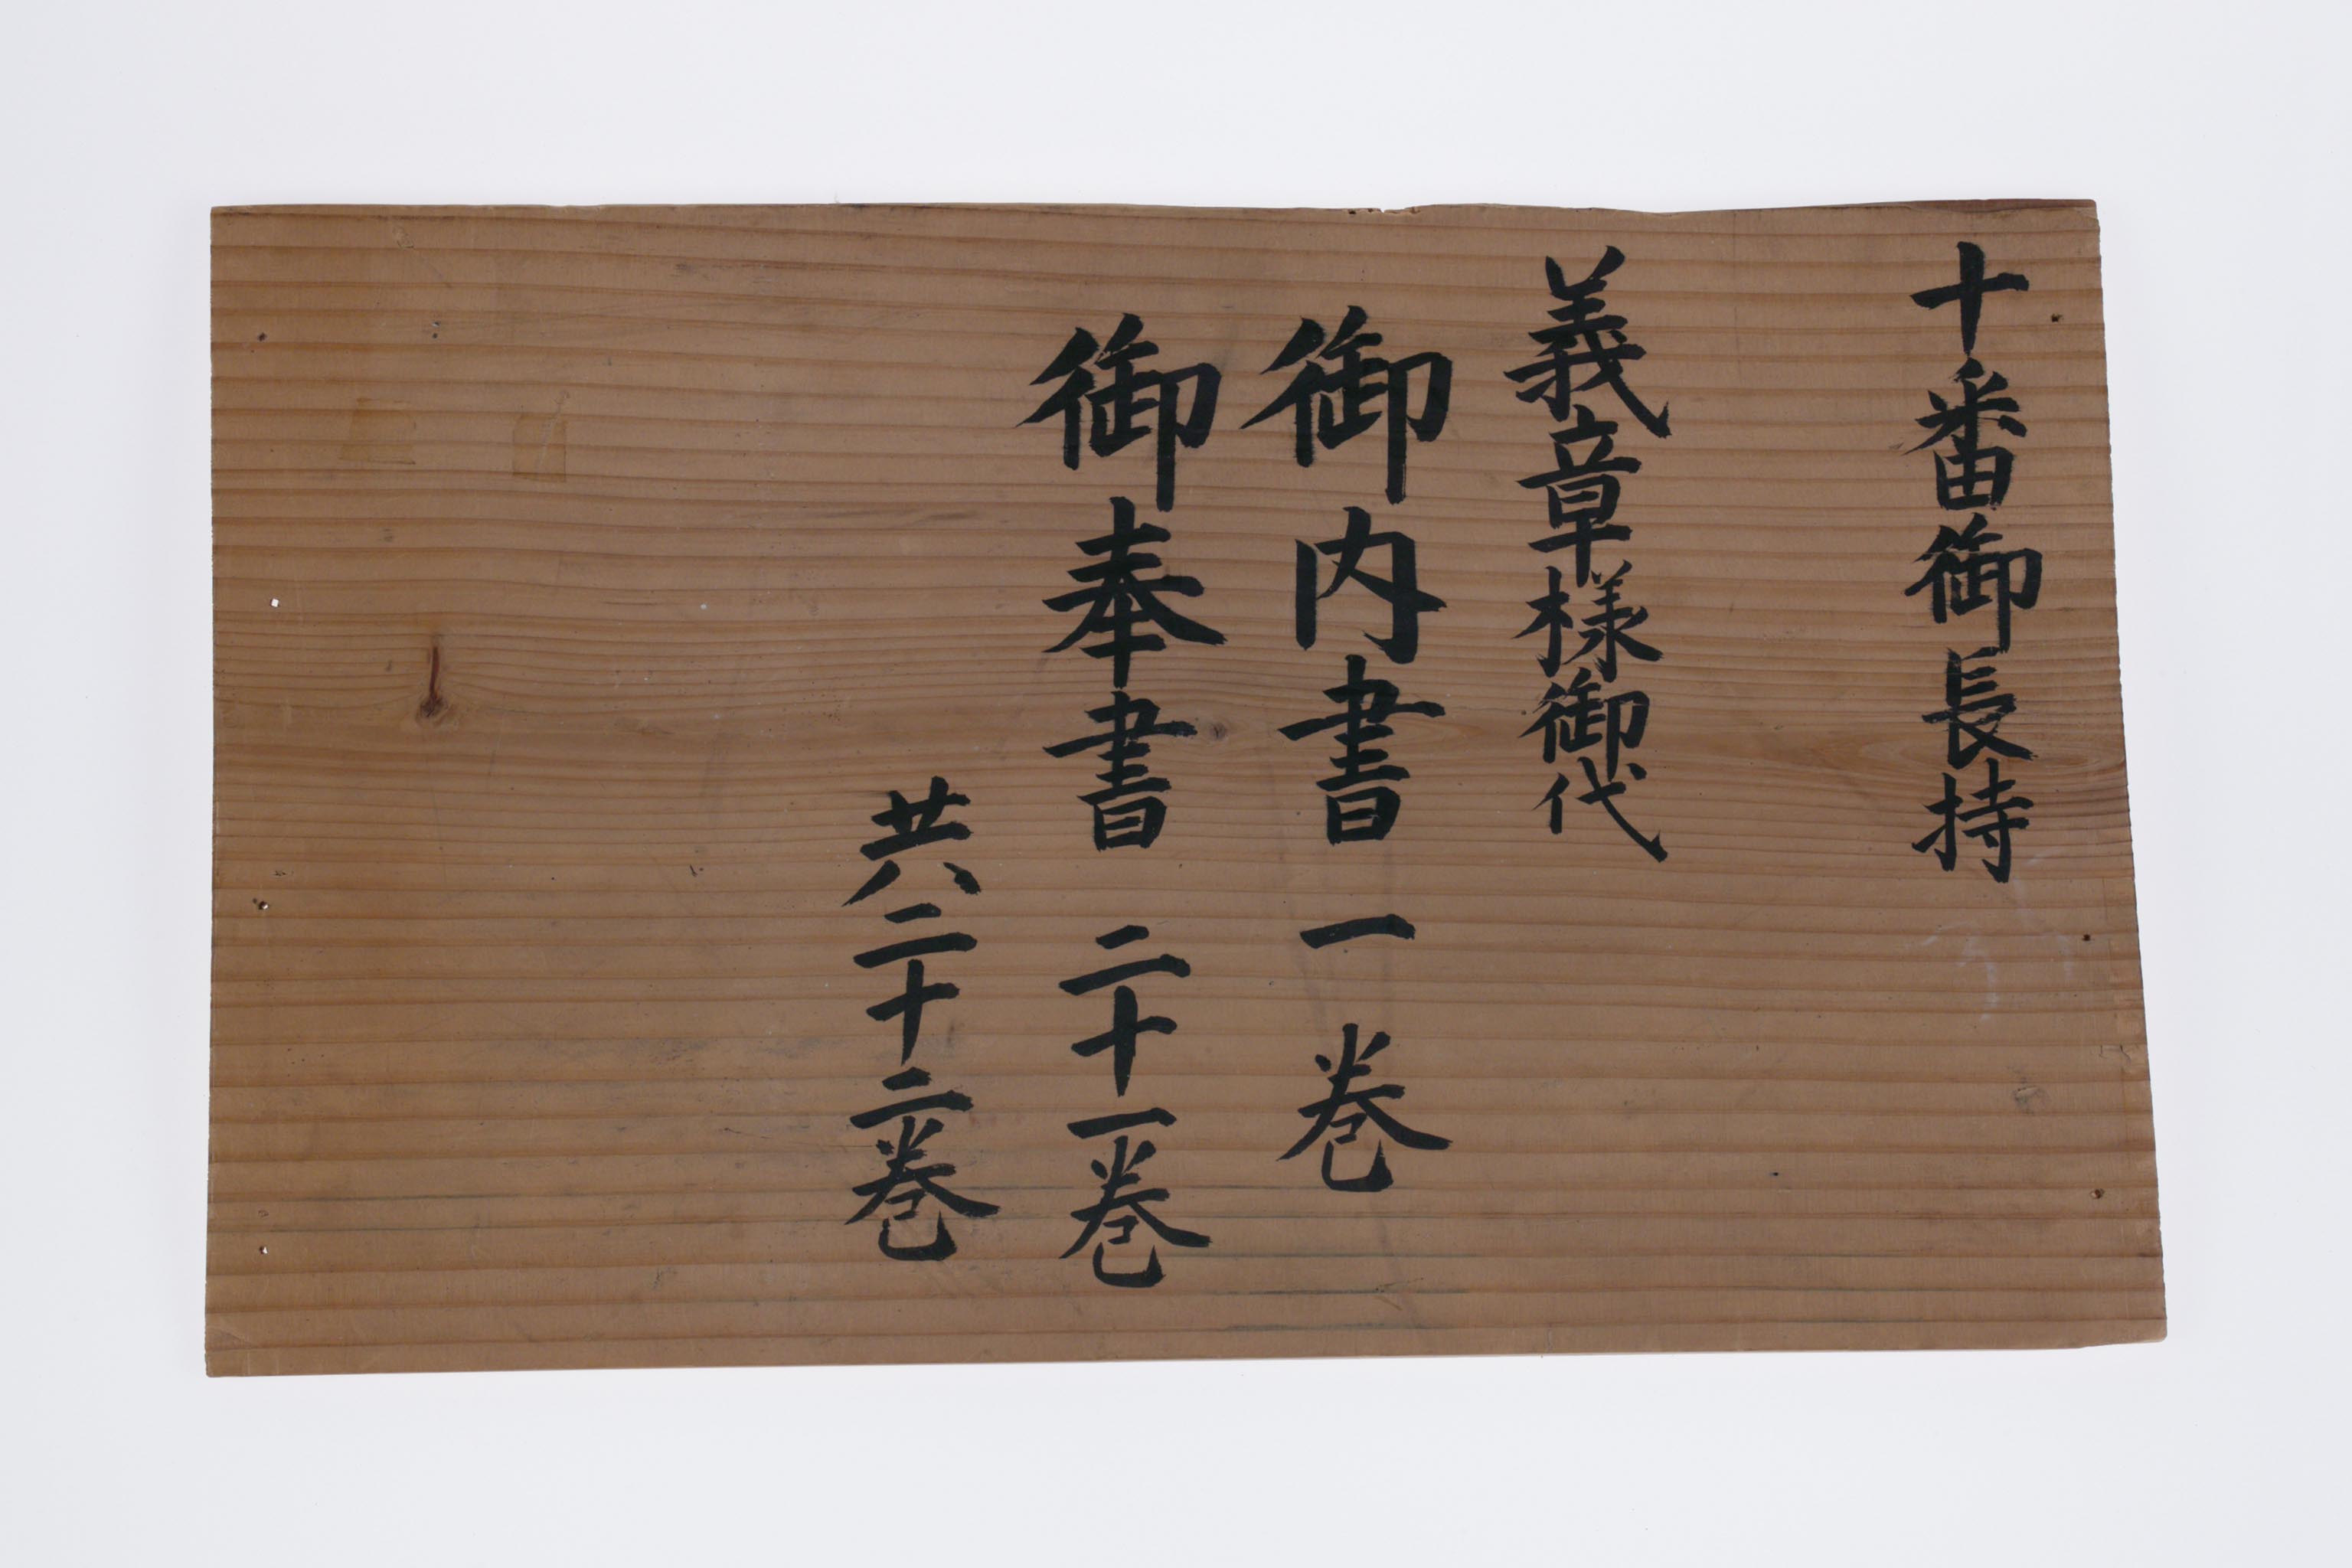 十番御長持
義章様御代
御内書一巻
御奉書二十一巻
共二十二巻